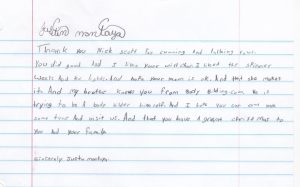 Justin montoya
Thank you Nick Scott for comming and talking to us.
You did good and I like your wellchair I liked the spinner
weels and the lights. And hope your mom is ok. And that she makes
it. And my brother knows you from Body Building.com. He is
trying to be a body bilder himself. And I hope you can come back
some time and visit us. And that you have a great christmas to
You and your Family.
sincerely Justin montoya